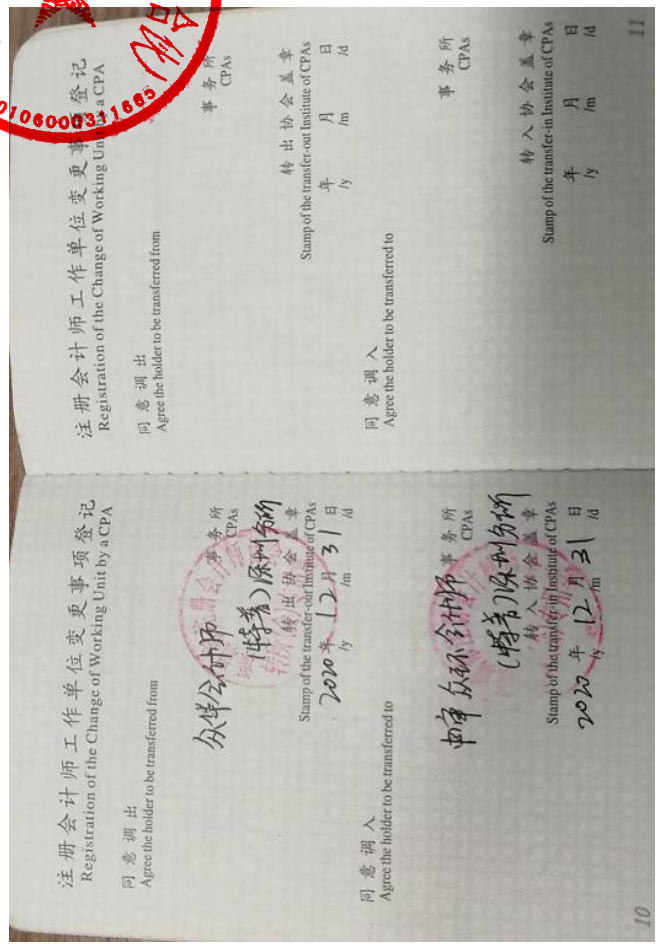 注册会计师工作单位变更事项登记
Registration of the Change of Working Unit by a CPA
同意调出
Agree the holder to be transferred from
众华会计师 事务所
CPAs
(特普)深圳分所
转出协会盖章
Stamp of the transfer-out Institute of CPAs
2020年 12月 31日
/y /m /d
同意调入
Agree the holder to be transferred to
中审众环会计师 事务所
CPAs
(特普)深圳分所
转入协会盖章
Stamp of the transfer-in Institute of CPAs
2020年 12月 31日
/y /m /d
10
注册会计师工作单位变更事项登记
Registration of the Change of Working Unit by a CPA
同意调出
Agree the holder to be transferred from
事务所
CPAs
转出协会盖章
Stamp of the transfer-out Institute of CPAs
年 月 日
/y /m /d
同意调入
Agree the holder to be transferred to
事务所
CPAs
转入协会盖章
Stamp of the transfer-in Institute of CPAs
年 月 日
/y /m /d
11